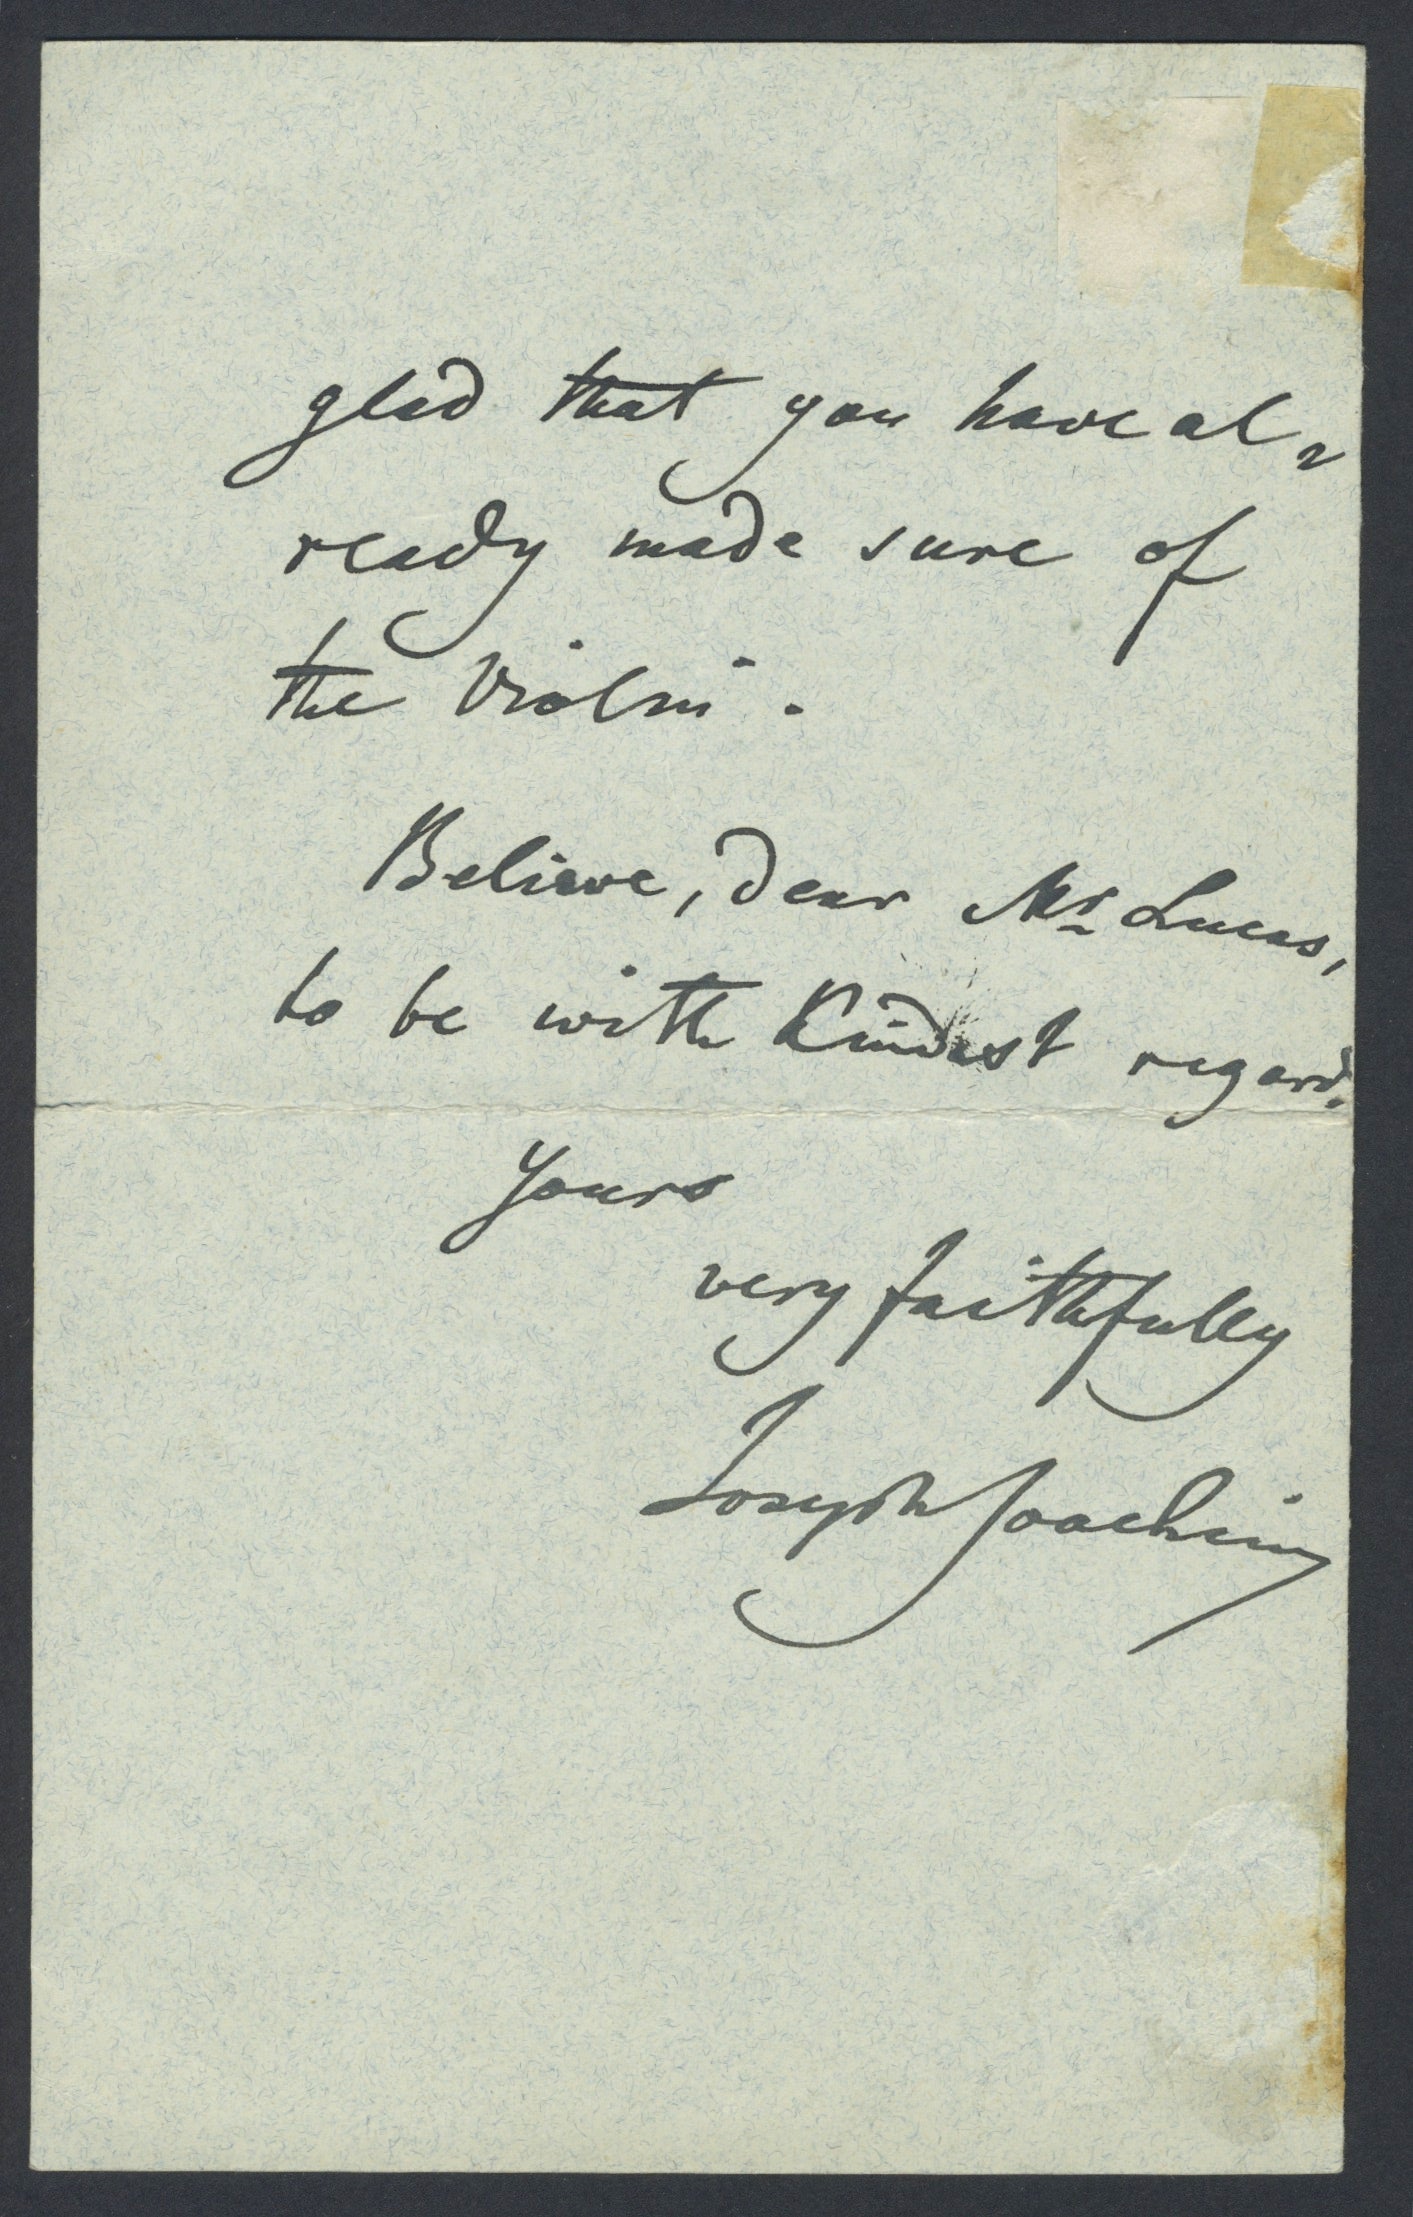 glad that you have al=
ready made sure of
the Violin.
Believe, dear Mr. Lucas,
to be with Kindest regard.
Yours
very faithfully
Joseph Joachim